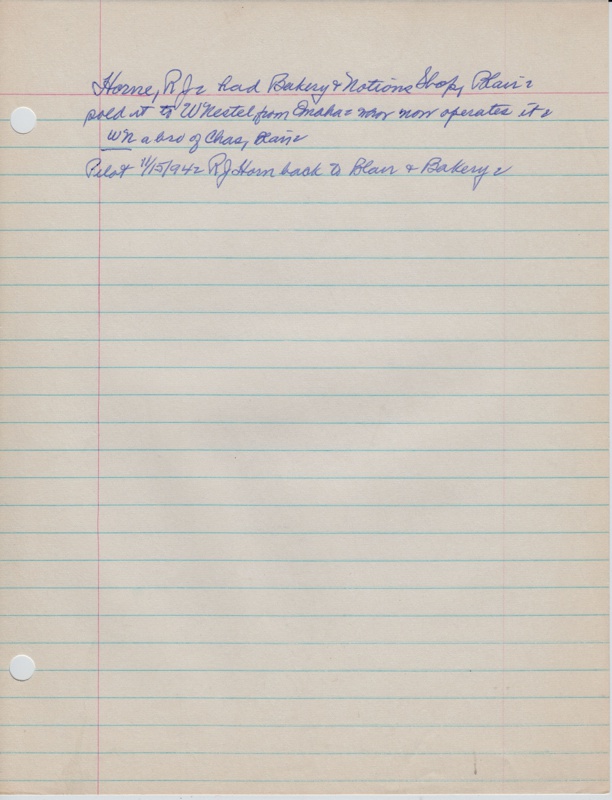 Horne, R J - had Bakery & Notions Shop, Blair -
sold it to W Nestel from Omaha = now operates it -
WN a bro of Chas, Blair -
Pilot 11/15/94 - R J Horn back to Blair & Bakery -